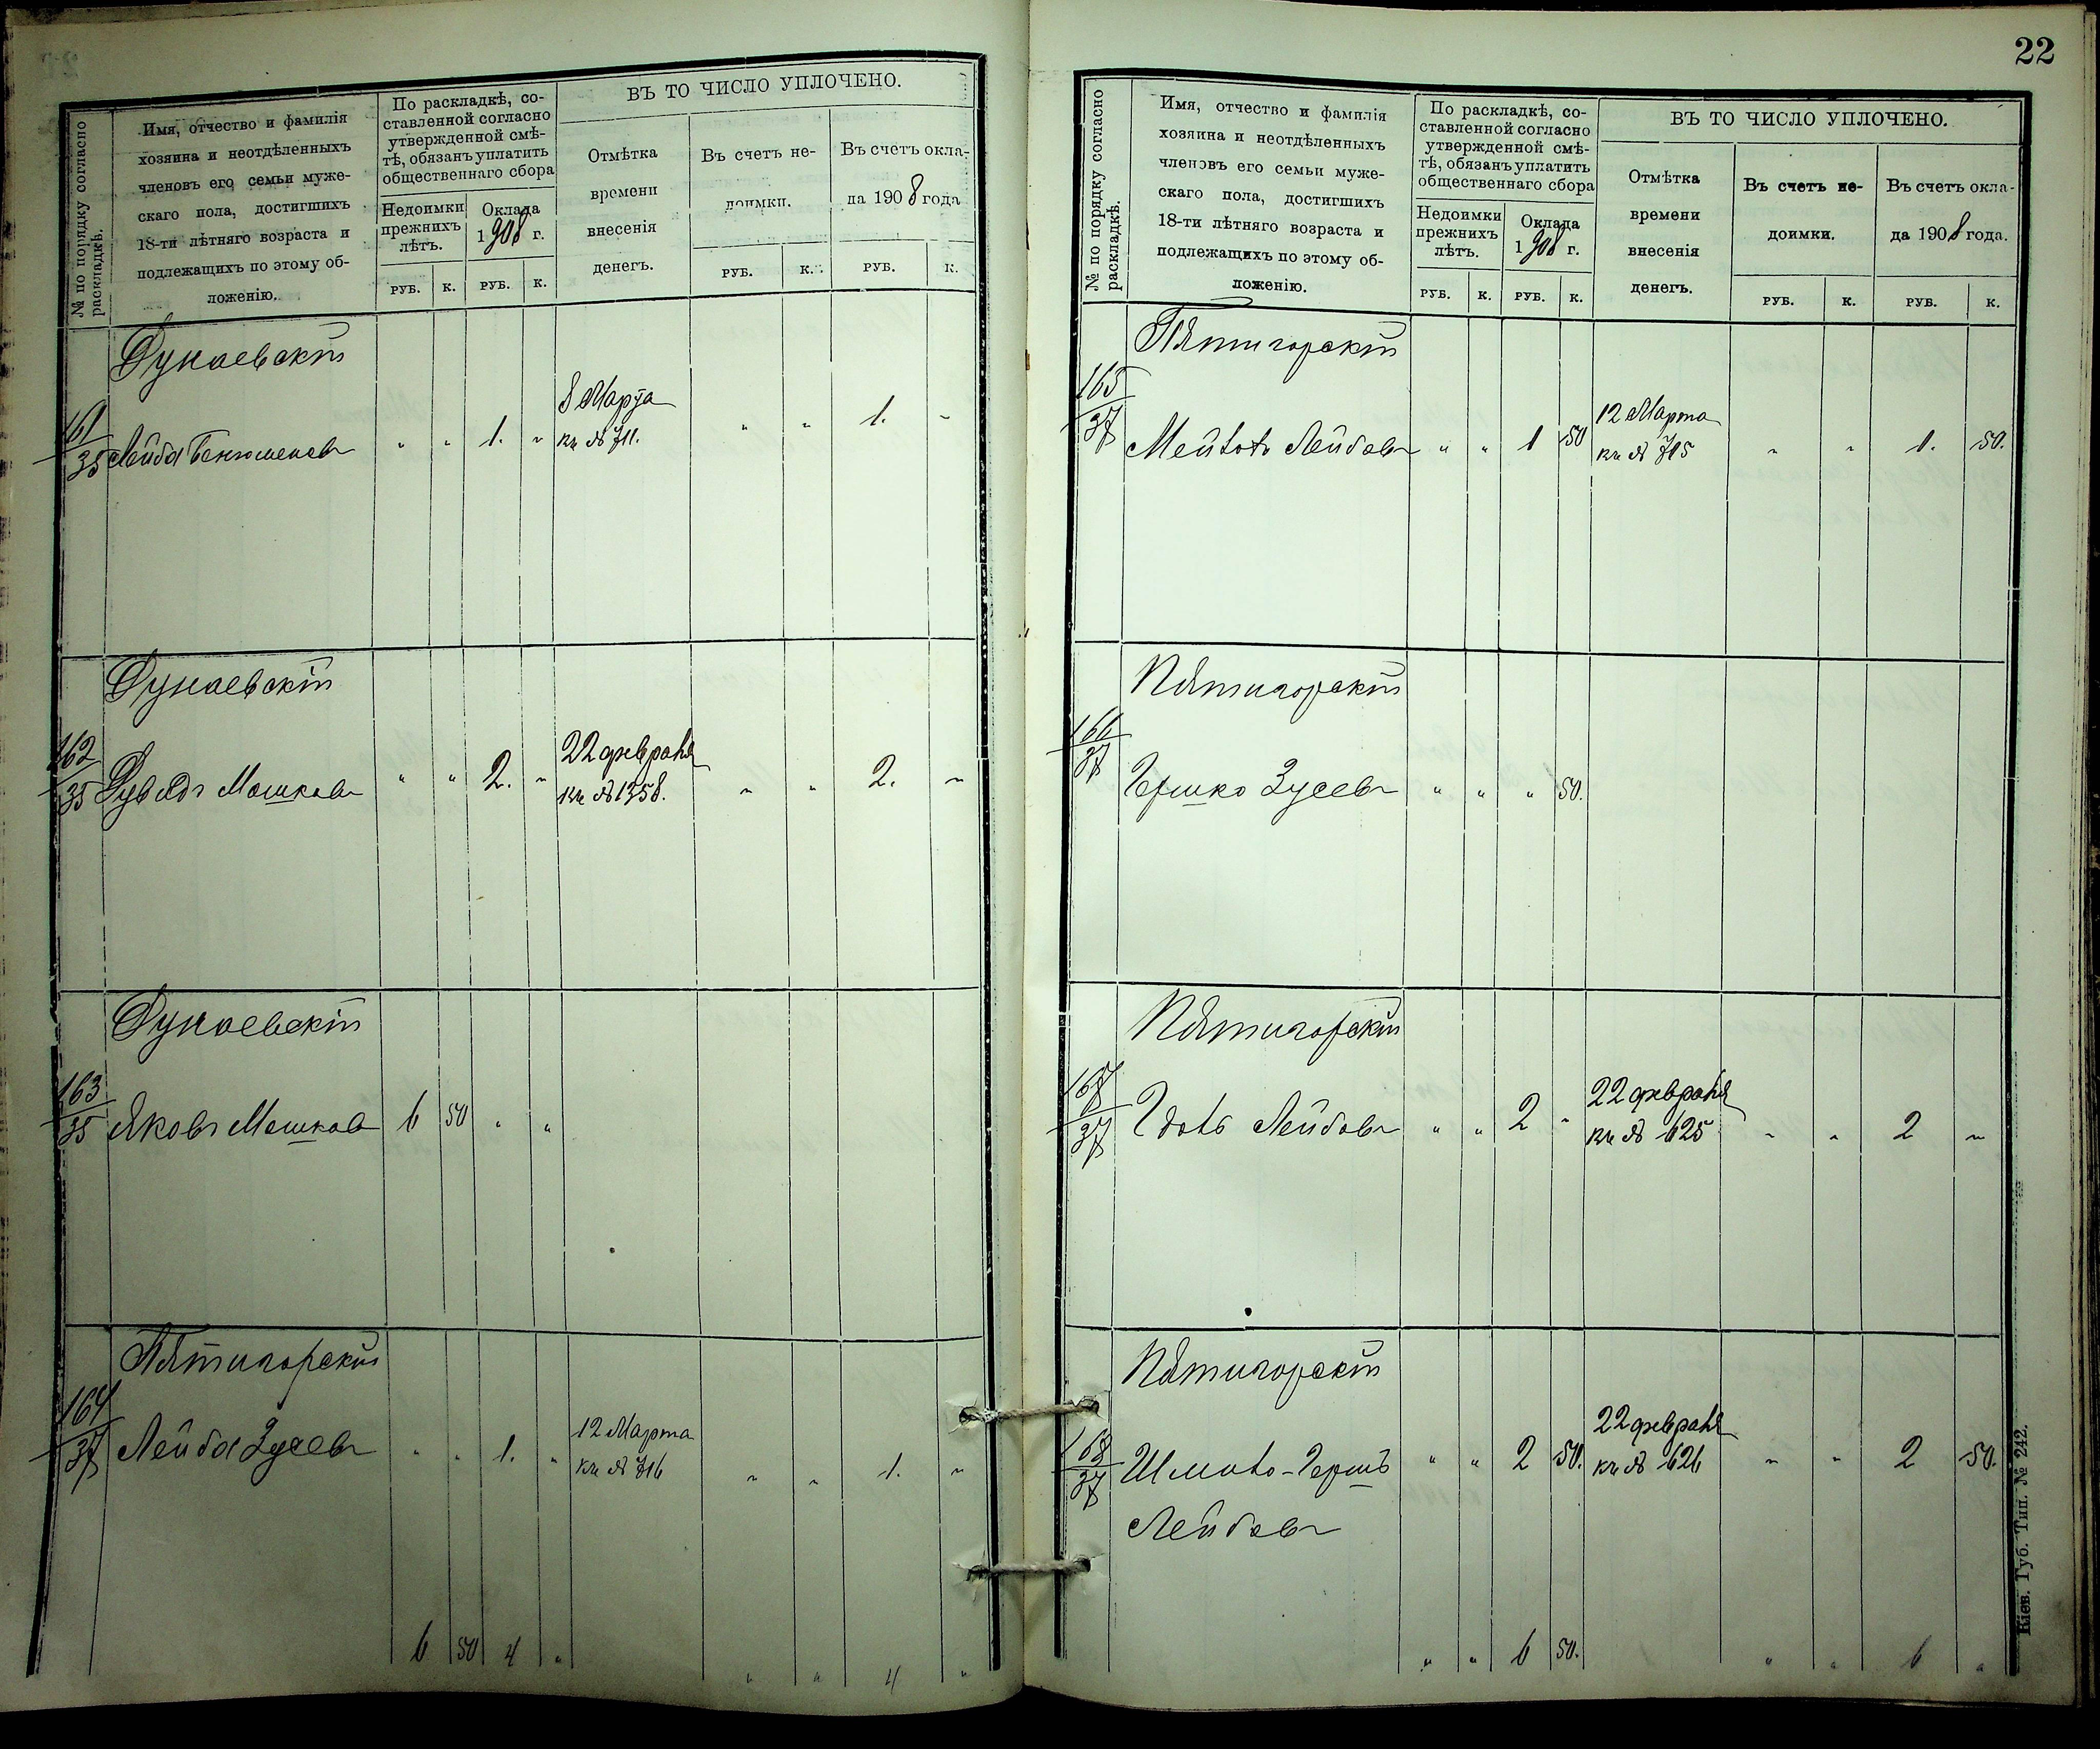 № по порядку согласно раскладкѣ.
Имя, отчество и фамилія
хозяина и неотдѣленныхъ
членовъ его семьи муже-
скаго пола, достигшихъ
18-ти лѣтняго возраста и
подлежащихъ по этому об-
ложенію.
По раскладкѣ, со-
ставленной согласно
утвержденной смѣ-
тѣ, обязанъ уплатить
общественнаго сбора
Недоимки
прежнихъ
лѣтъ.
Оклада
1908 г.
РУБ. К. РУБ. К.
ВЪ ТО ЧИСЛО УПЛОЧЕНО.
Отмѣтка
времени
внесенія
денегъ.
Въ счетъ не-
доимки.
Въ счетъ окла-
да 1908 года
РУБ. К. РУБ. К.
Дунаевскій
161/35 Лейба Бенюменовъ " " 1. " 8 Марта кв № 711. " " 1. "
Дунаевскій
162/35 Дувидъ Мошковъ " " 2. " 22 февраля кв № 1358. " " 2. "
Дунаевскій
163/35 Яковъ Мошковъ 6 50 " "
Пятигорскій
164/37 Лейба Зусевъ " " 1. " 12 Марта кв № 716 " " 1. "
6 50 4 " " " 4 "
22
№ по порядку согласно раскладкѣ.
Имя, отчество и фамилія
хозяина и неотдѣленныхъ
членовъ его семьи муже-
скаго пола, достигшихъ
18-ти лѣтняго возраста и
подлежащихъ по этому об-
ложенію.
По раскладкѣ, со-
ставленной согласно
утвержденной смѣ-
тѣ, обязанъ уплатить
общественнаго сбора
Недоимки
прежнихъ
лѣтъ.
Оклада
1908 г.
РУБ. К. РУБ. К.
ВЪ ТО ЧИСЛО УПЛОЧЕНО.
Отмѣтка
времени
внесенія
денегъ.
Въ счетъ не-
доимки.
Въ счетъ окла-
да 1908 года.
РУБ. К. РУБ. К.
Пятигорскій
165/37 Лейбовъ " " 1 50 12 Марта кв № 715 " " 1. 50.
Пятигорскій
166/37 Гершко Зусевъ " " " 50.
Пятигорскій
167/37 Лейбовъ " " 2 " 22 февраля кв № 625 " " 2 "
Пятигорскій
168/37 Шмило-Гершъ " " 2 50. 22 февраля кв № 626 " " 2 50.
Лейбовъ
" " 6 50. " " 6 "
Кіев. Губ. Тип. № 242.